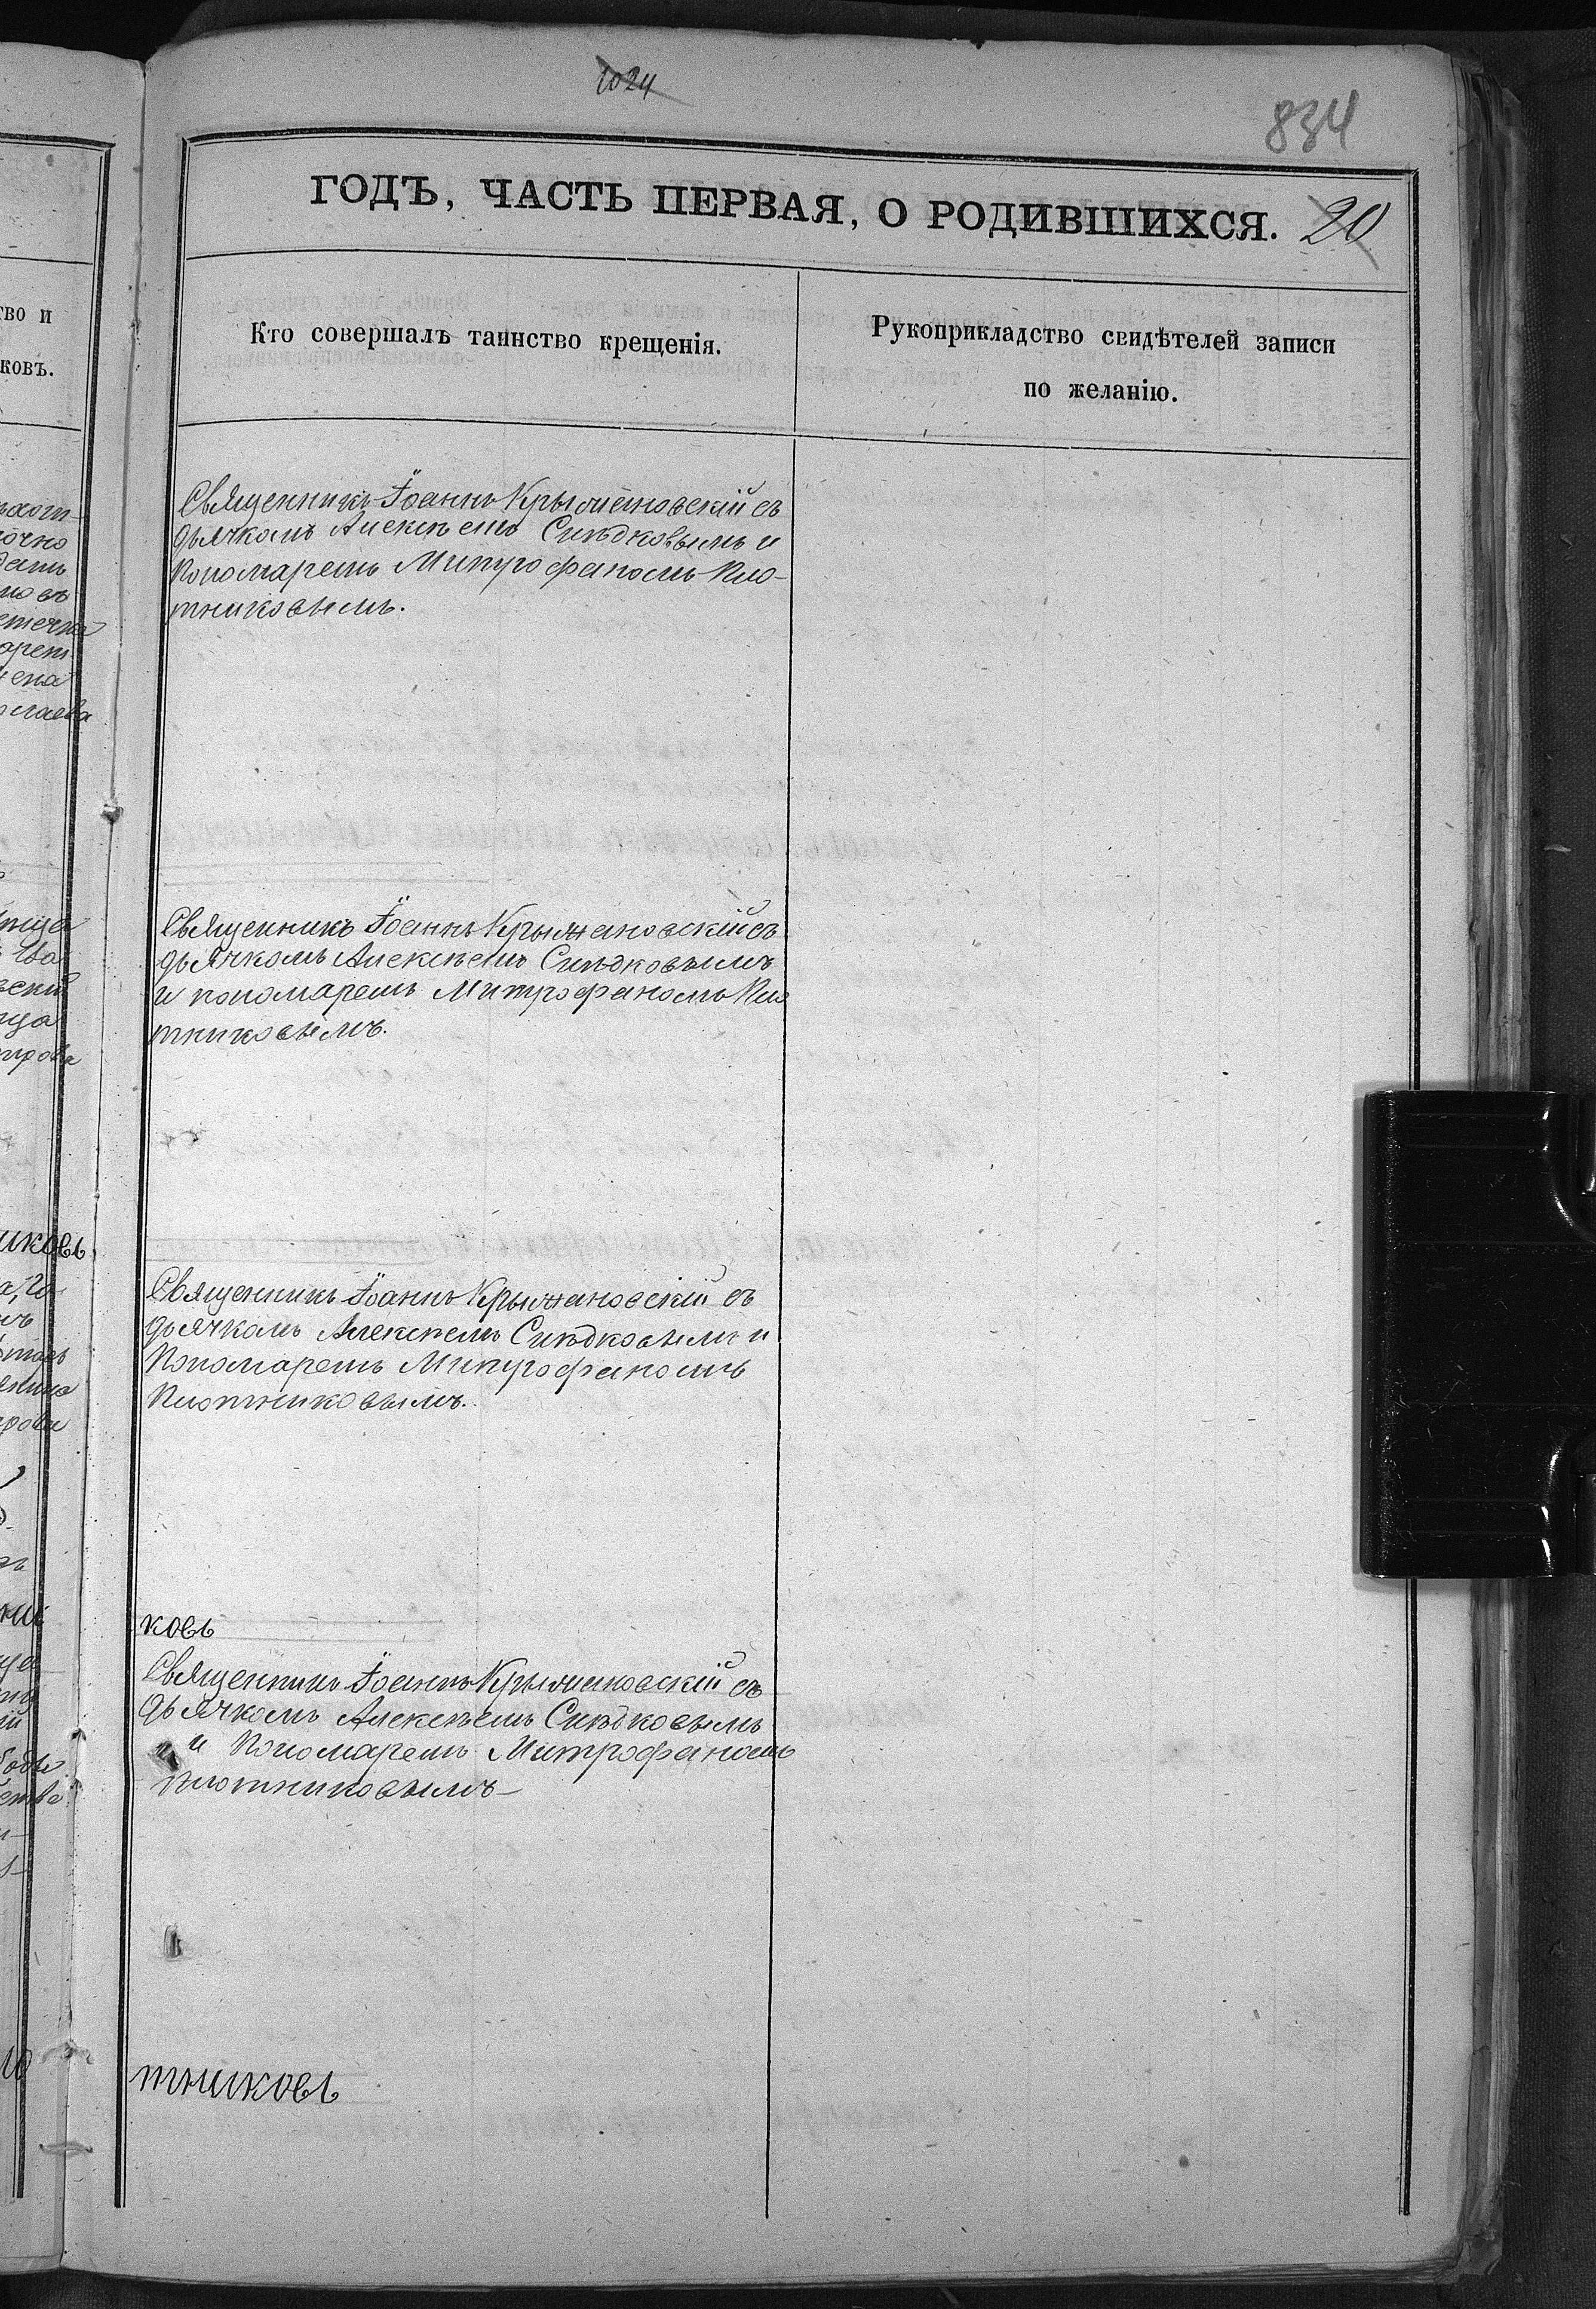 1024
834
ГОДЪ, ЧАСТЬ ПЕРВАЯ, О РОДИВШИХСЯ. 20
Кто совершалъ таинство крещенія.
Рукоприкладство свидѣтелей записи
по желанію.
тво и
ковъ.
Священникъ Іоаннъ Крыжановскій съ
дьячкомъ Алексѣемъ Сѣдковымъ и
пономаремъ Митрофаномъ Пло-
тниковымъ.
Священникъ Іоаннъ Крыжановскій съ
дьячкомъ Алексѣемъ Сѣдковымъ
и пономаремъ Митрофаномъ Пло
тниковымъ.
Священникъ Іоаннъ Крыжановскій съ
дьячкомъ Алексѣемъ Сѣдковымъ и
Пономаремъ Митрофаномъ
Плотниковымъ.
ковъ
Священникъ Іоаннъ Крыжановскій съ
дьячкомъ Алексѣемъ Сѣдковымъ
и Пономаремъ Митрофаномъ
Плотниковымъ
тниковъ